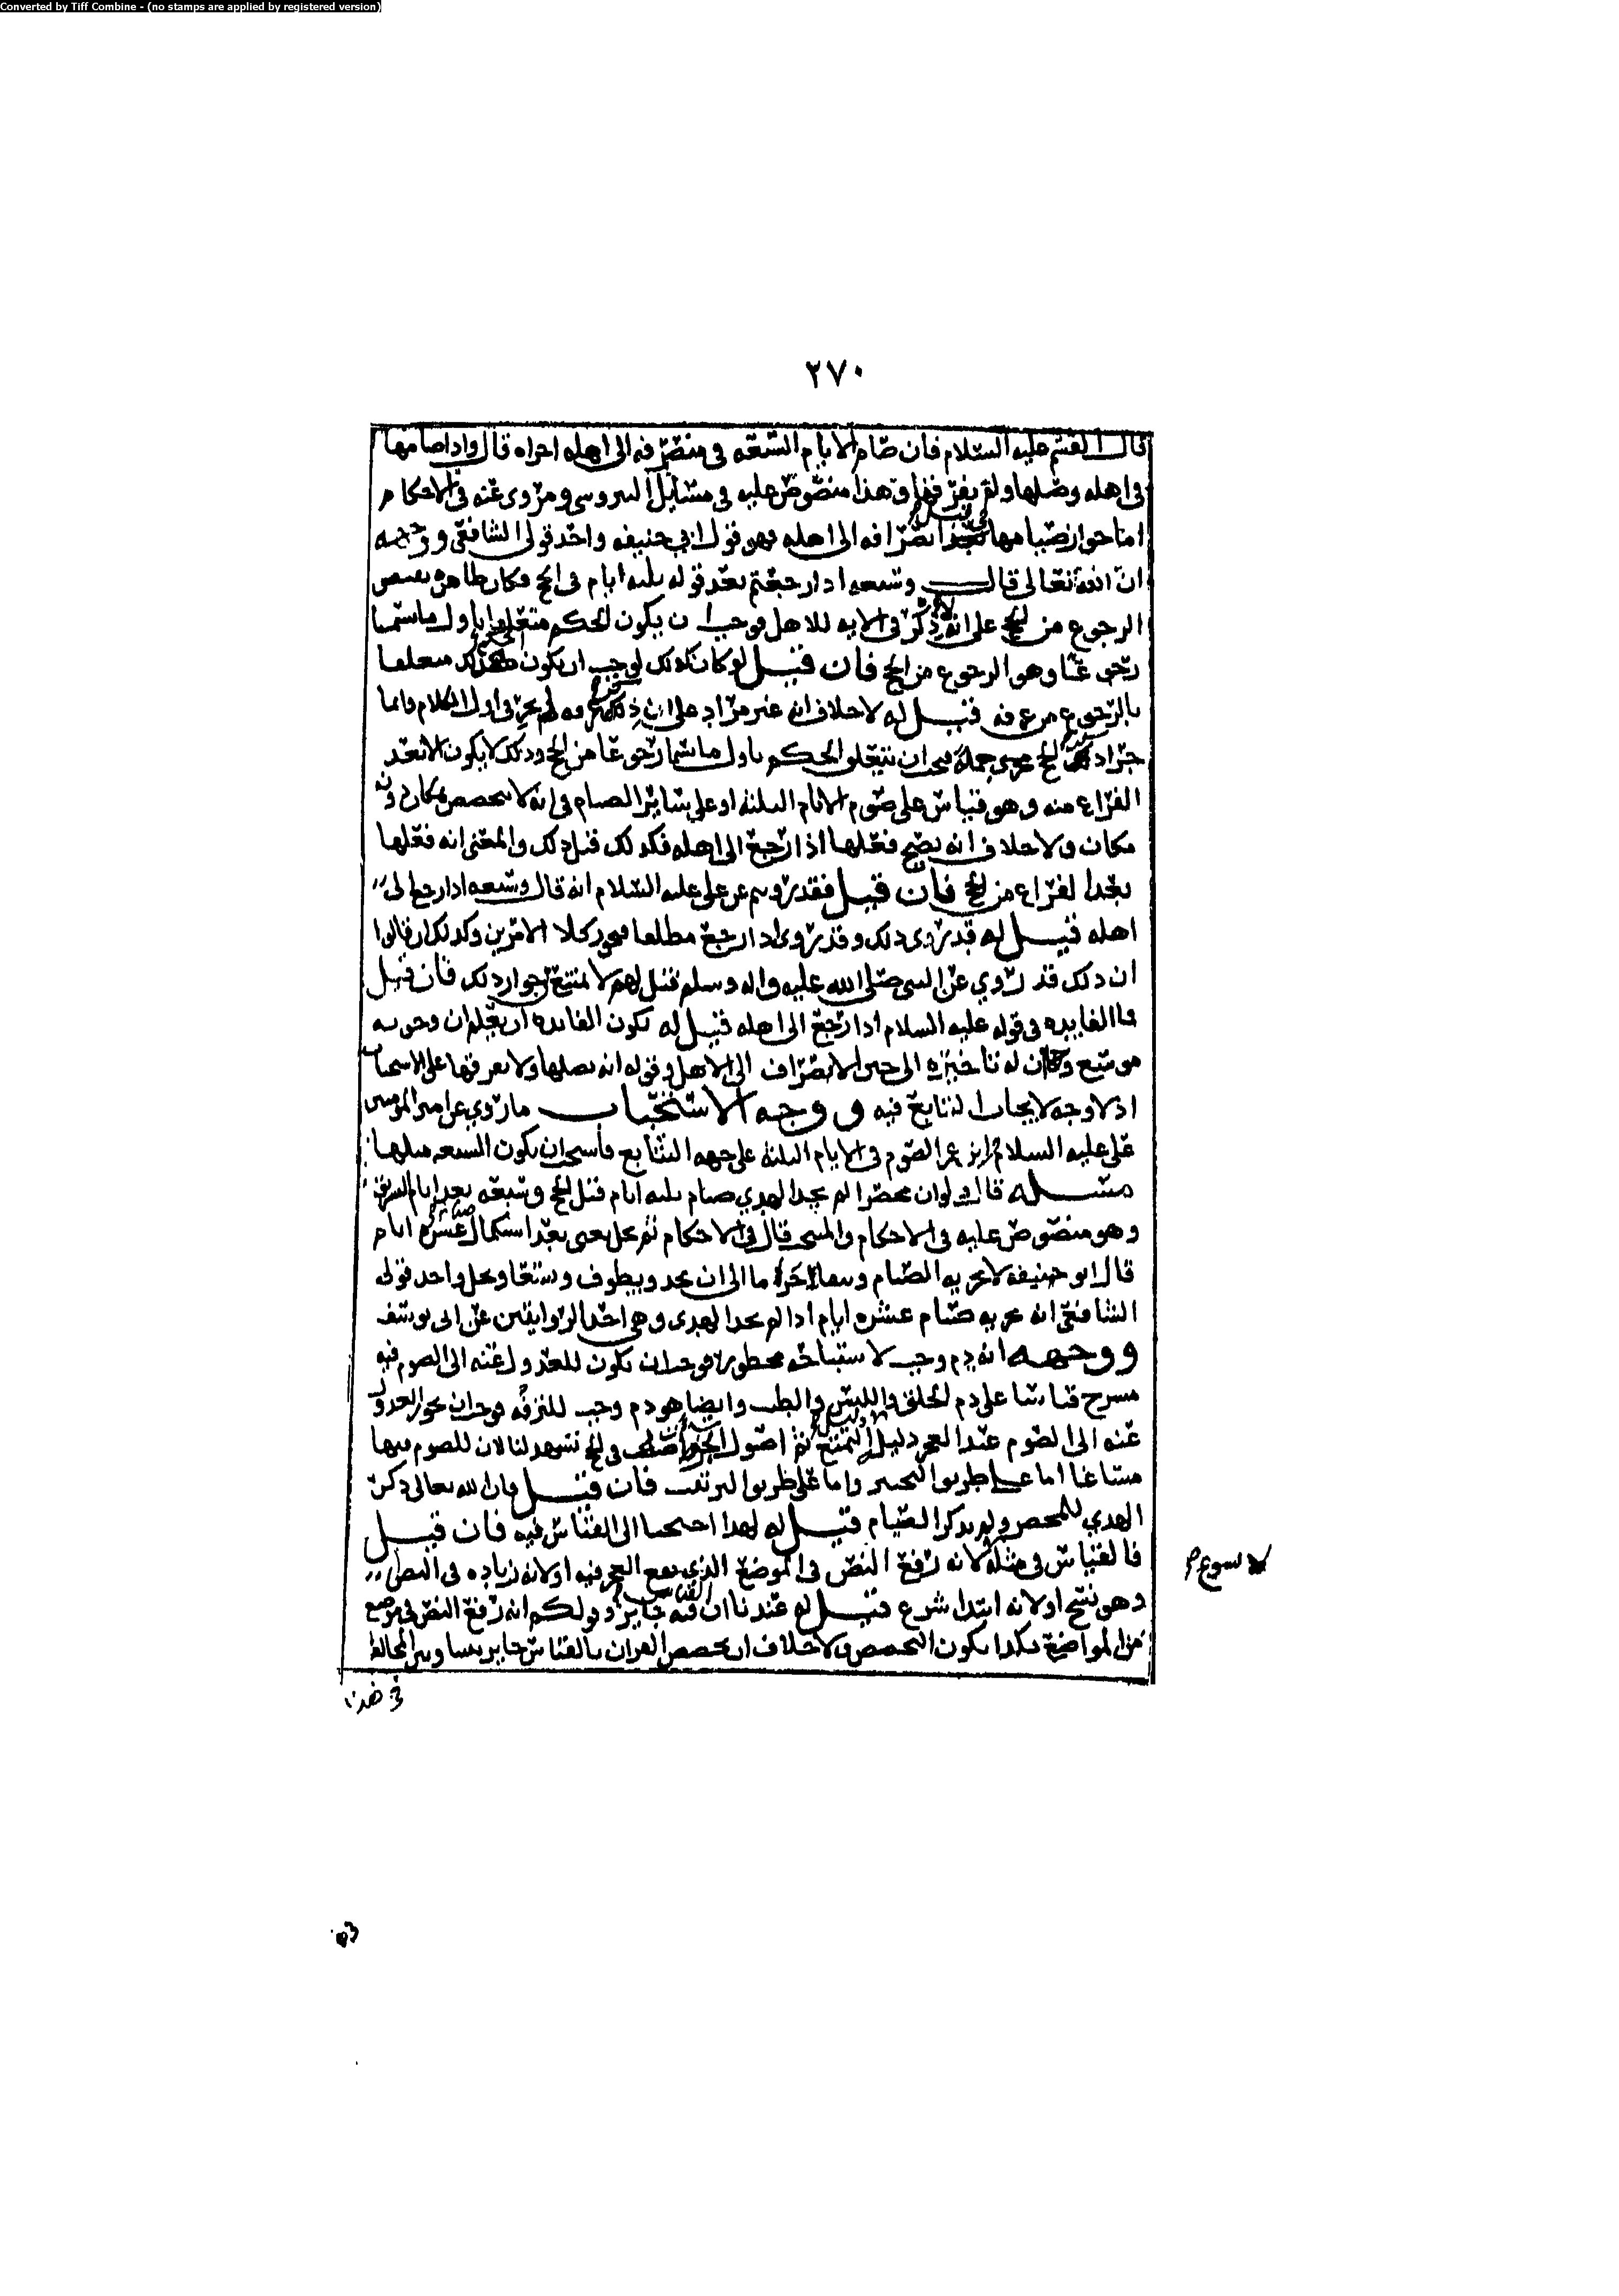 Converted by Tiff Combine - (no stamps are applied by registered version)
٢٧٠
قال القسم عليه السلام فان صام الايام السبعه في منصرفه الى اهله اجزاه قال واذا صامها
في اهله وصلها ولم يفرقها وهذا منصوص عليه في مسايل السروسي ومروي عنه في الاحكام
اما جواز صيامها انصرافه الى اهله فهو قول ابي حنيفه واحد قولي الشافعي ووجهه
ان الله تعالى قال وسبعه اذا رجعتم بعد قوله ثلثه ايام في الحج فكان ظاهره يقتضي
الرجوع من الحج على انه ذكر في الايه للاهل فوجب ان يكون الحكم متعلقا باول ما يسمى
رجوعا وهو الرجوع من الحج فان قيل لو كان كذلك لوجب ان يكون متعلقا
بالرجوع من عرفه قيل له لا خلاف انه غير مراد على ان ذكر عرفه لم يجر في اول الكلام وانما
جرا ذكر الحج جمله فيجب ان يتعلق الحكم باول ما يسمى رجوعا من الحج وذلك لا يكون الا بعد
الفراغ منه وهو قياس على صوم الايام الثلثه او على ساير الصيام في انه لا يتخصص بمكان دون
مكان ولا خلاف انه يصح فعلها اذا رجع الى اهله فكذلك قبل ذلك والمعنى انه فعلها
بعد الفراغ من الحج فان قيل فقد روي عن علي عليه السلام انه قال وسبعه اذا رجع الى
اهله قيل له قد روي ذلك وقد روي اذا رجع مطلقا فيجوز كلا الامرين وكذلك ان قالوا
ان ذلك قد روي عن النبي صلى الله عليه واله وسلم قيل لهم لا يمتنع لجواز ذلك فان قيل
فما الفايده في قوله عليه السلام اذا رجع الى اهله قيل له يكون الفايده ان يعلم ان وجوبه
موسع وان له تاخيره الى حين الانصراف الى الاهل وقوله انه يصلها ولا يفرقها على الاستحباب
اذ لا وجه لايجاب التتابع فيه ووجه الاستحباب ما روي عن امير المومنين
علي عليه السلام الصوم في الايام الثلثه على جهه التتابع فاستحب ان يكون السبعه مثلها
مسئله قال ولو ان محصرا لم يجد الهدي صام ثلثه ايام قبل الحج وسبعه بعد ايام التشريق
وهو منصوص عليه في الاحكام والمنتخب قال في الاحكام ثم يحل يعني بعد استكمال صيام عشره ايام
قال ابو حنيفه لا يجزيه الصيام ويبقا حراما الى ان يجد ويطوف ويسعا ويحل واحد قولي
الشافعي انه يجزيه صيام عشره ايام اذا لم يجد الهدي وهي احد الروايتين عن ابي يوسف
ووجهه انه دم وجب لاستباحه محظوره فوجب ان يكون للعدول عنه الى الصوم فيه
مسرح قياسا على دم الحلق واللبس والطيب وايضا هو دم وجب للترفه فوجب ان يجوز العدول
عنه الى الصوم عند العجز دليله التمتع ثم اصول في الحج تشهد لنا لان للصوم فيها
مساغا اما على طريق التخيير واما على طريق الترتيب فان قيل فان الله تعالى ذكر
الهدي للمحصر ولم يذكر الصيام قيل له لهذا احتجنا الى القياس فيه فان قيل
فالقياس في مثله لا يسوغ لانه رفع النص في الموضع الذي يقع العجز فيه او لانه زياده في النص
وهو نسخ او لانه ابتدا شرع قيل له عندنا ان القياس فيه جايز وقولكم انه رفع النص في موضع
من المواضع هكذا يكون التخصيص ولا خلاف ان تخصيص القران بالقياس جايز بيننا وبين المخالف